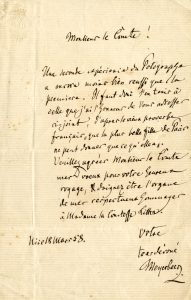 Monsieur le Comte !
Une seconde expérience du Photographe
a encore moins bien réussi que la
première. Il faut donc s'en tenir à
celle que j'ai l'honneur de Vous adresser
ci-jointe. D'après le vieux proverbe
français, que la plus belle fille de Paris
ne peut donner que ce qu'elle a.
Veuillez agréer Monsieur le Comte
mes voeux pour votre heureux
voyage, & daignez être l'organe
de mes respectueux hommages
à Madame la Comtesse
Votre
tout dévoué
Meyerbeer
Nice 18 Mars 58.